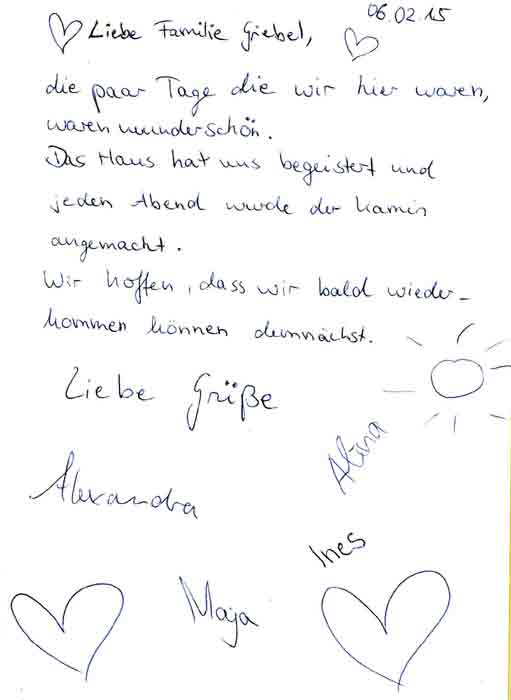 06.02.15
Liebe Familie Griebel,
die paar Tage die wir hier waren,
waren wunderschön.
Das Haus hat uns begeistert und
jeden Abend wurde der Kamin
angemacht.
Wir hoffen, dass wir bald wieder-
kommen können demnächst.
Liebe Grüße
Alina
Alexandra
Ines
Maja